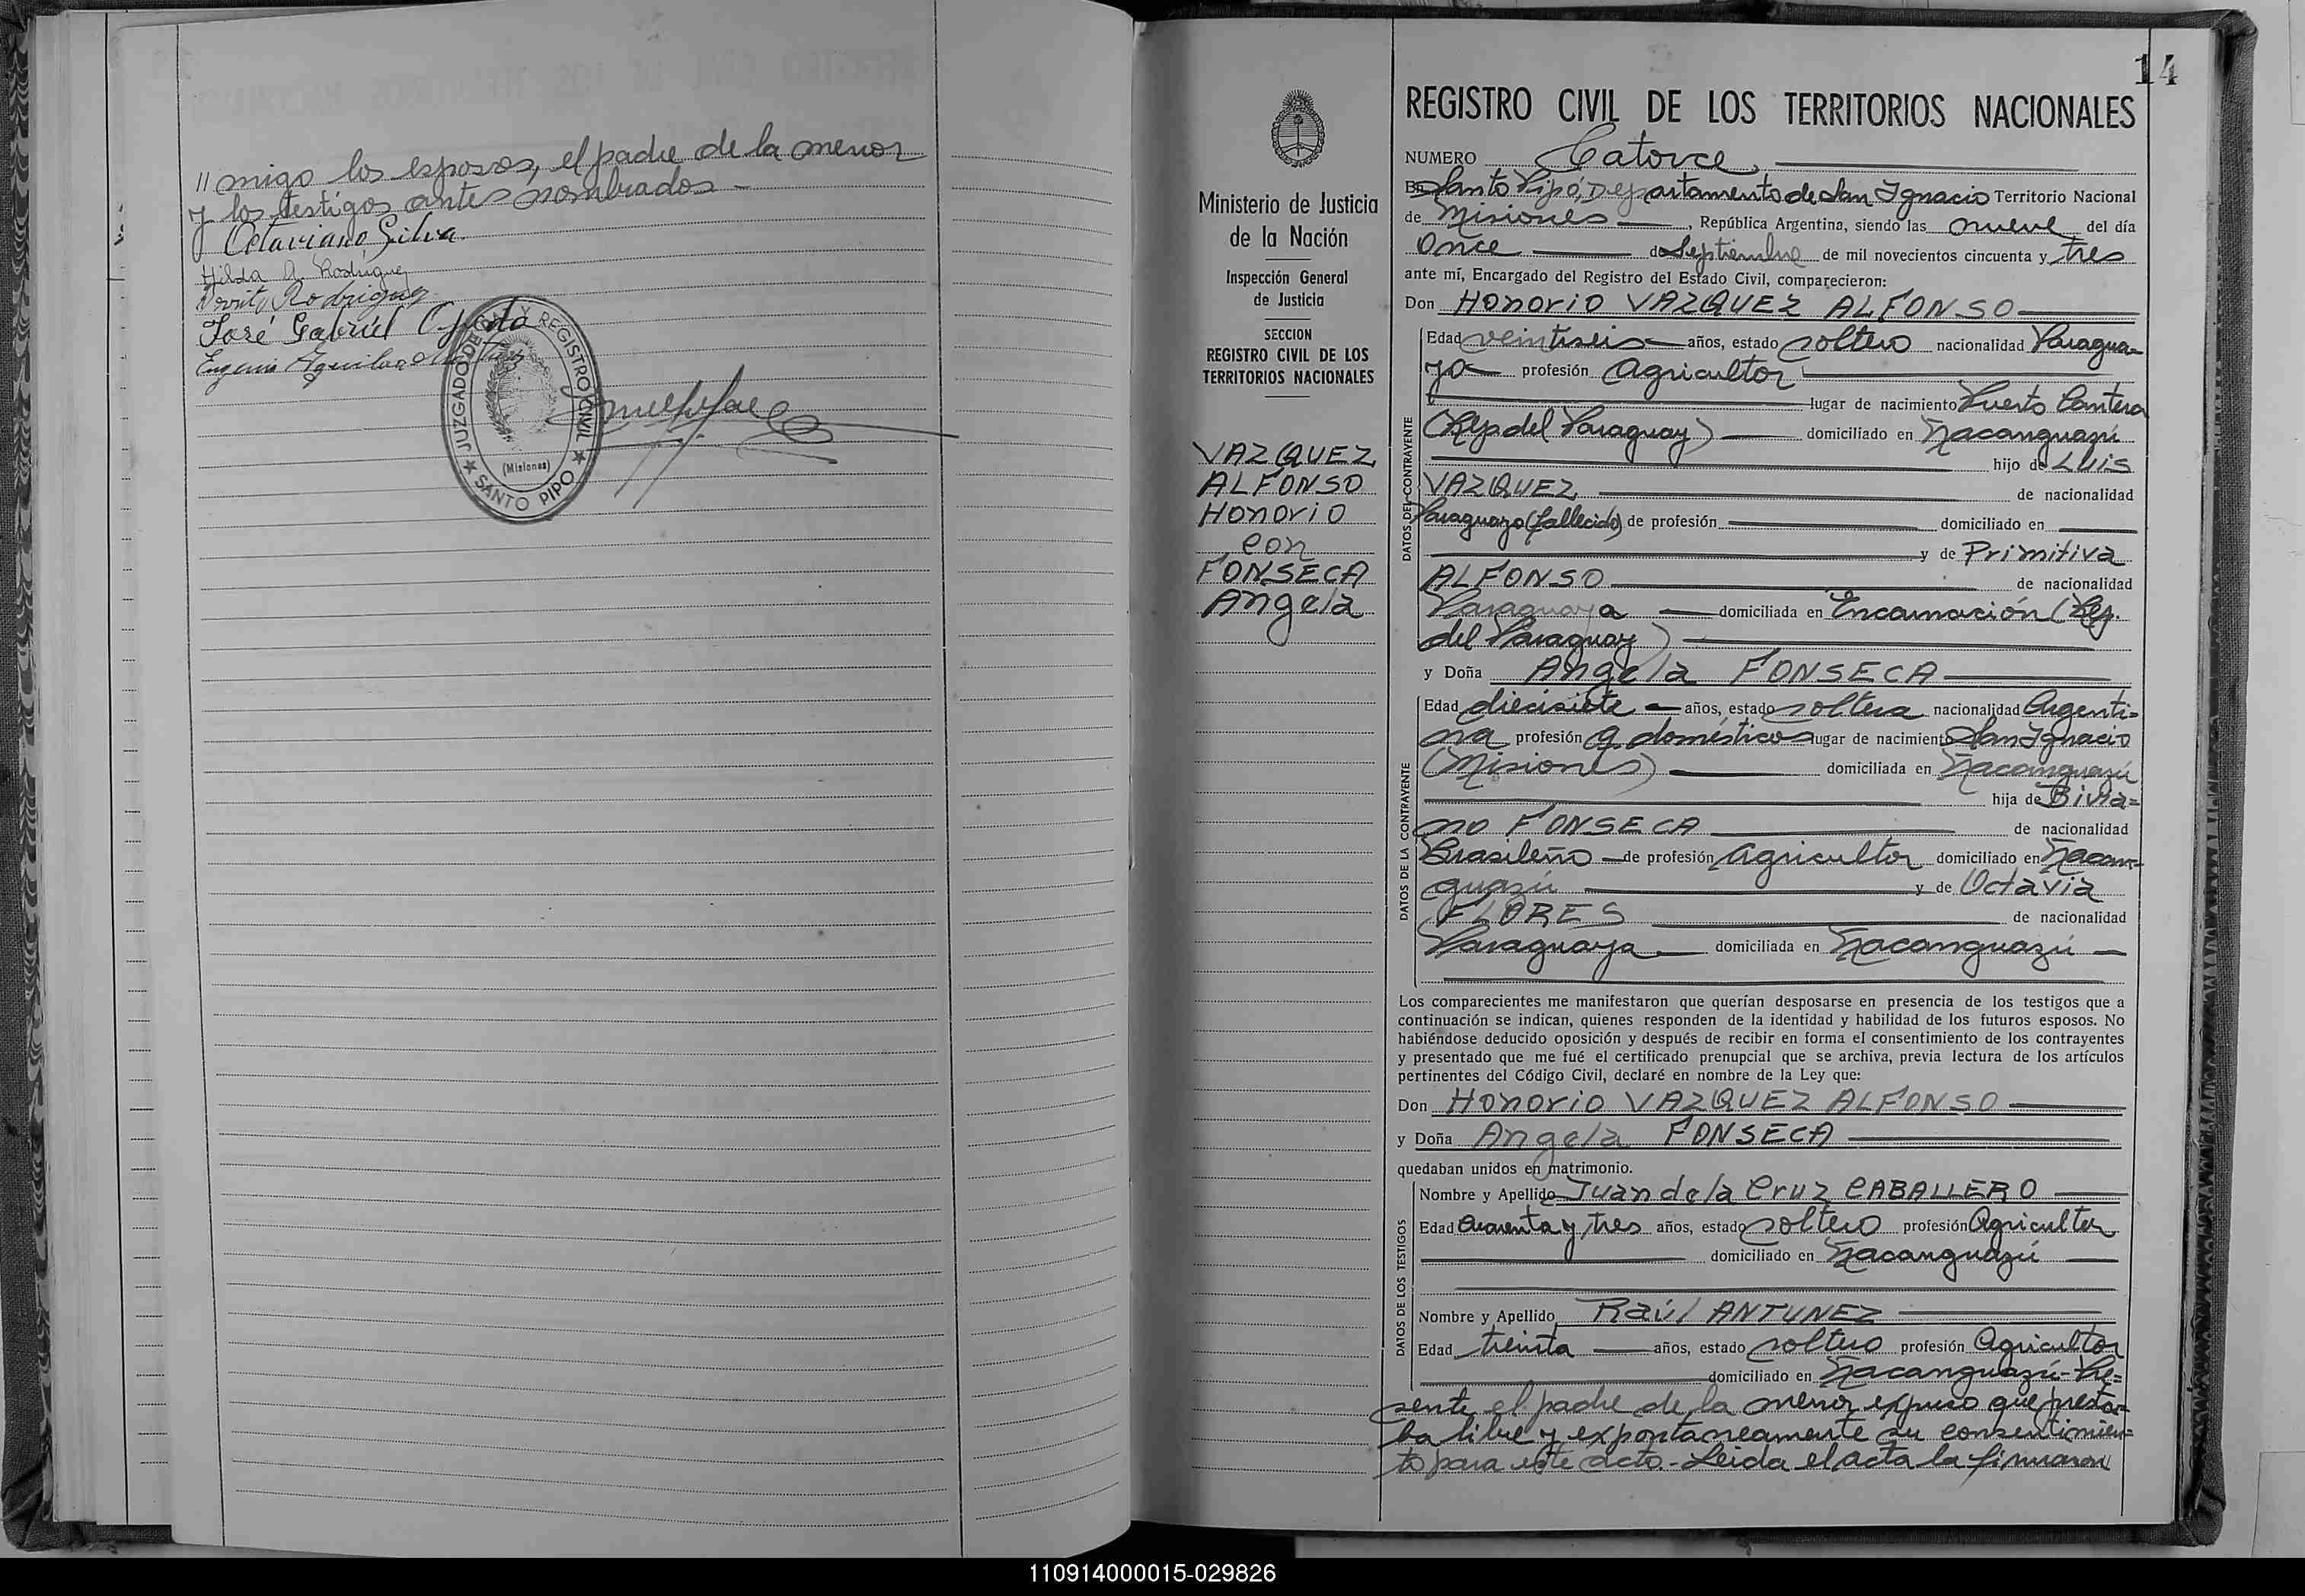 // migo los esposos, el padre de la menor
y los testigos antes nombrados –
Octaviano Silva
Hilda A. Rodriguez
Rodriguez
José Gabriel Ojeda
Eugenio Aguilar
JUZGADO DE PAZ Y REGISTRO CIVIL
(Misiones)
★ SANTO PIPO ★
14
Ministerio de Justicia
de la Nación
Inspección General
de Justicia
SECCION
REGISTRO CIVIL DE LOS
TERRITORIOS NACIONALES
VAZQUEZ
ALFONSO
Honorio
con
FONSECA
Angela
REGISTRO CIVIL DE LOS TERRITORIOS NACIONALES
NUMERO Catorce,
En Santo Pipó, Departamento de San Ignacio Territorio Nacional
de Misiones, República Argentina, siendo las nueve del día
once de Septiembre de mil novecientos cincuenta y tres
ante mí, Encargado del Registro del Estado Civil, comparecieron:
Don Honorio VAZQUEZ ALFONSO
DATOS DEL CONTRAYENTE
Edad veintiseis años, estado soltero nacionalidad Paragua=
yo profesión Agricultor
lugar de nacimiento Puerto Cantera
(Rep. del Paraguay) domiciliado en Ñacanguazú
hijo de Luis
VAZQUEZ de nacionalidad
Paraguayo (fallecido) de profesión domiciliado en
y de Primitiva
ALFONSO de nacionalidad
Paraguaya domiciliada en Encarnación (Rep.
del Paraguay)
y Doña Angela FONSECA
DATOS DE LA CONTRAYENTE
Edad diecisiete años, estado soltera nacionalidad Argenti=
na profesión q. domésticos lugar de nacimiento San Ignacio
(Misiones) domiciliada en Ñacanguazú
hija de Bivia=
no FONSECA de nacionalidad
Brasileño de profesión Agricultor domiciliado en Ñacan=
guazú y de Octavia
FLORES de nacionalidad
Paraguaya domiciliada en Ñacanguazú
Los comparecientes me manifestaron que querían desposarse en presencia de los testigos que a
continuación se indican, quienes responden de la identidad y habilidad de los futuros esposos. No
habiéndose deducido oposición y después de recibir en forma el consentimiento de los contrayentes
y presentado que me fué el certificado prenupcial que se archiva, previa lectura de los artículos
pertinentes del Código Civil, declaré en nombre de la Ley que:
Don Honorio VAZQUEZ ALFONSO
y Doña Angela FONSECA
quedaban unidos en matrimonio.
DATOS DE LOS TESTIGOS
Nombre y Apellido Juan de la Cruz CABALLERO
Edad cuarenta y tres años, estado soltero profesión Agricultor
domiciliado en Ñacanguazú
Nombre y Apellido Raúl ANTUNEZ
Edad treinta años, estado soltero profesión Agricultor
domiciliado en Ñacanguazú - Pre=
sente el padre de la menor expuso que presta=
ba libre y expontaneamente su consentimien=
to para este acto. - Leida el acta la firmaron
110914000015-029826